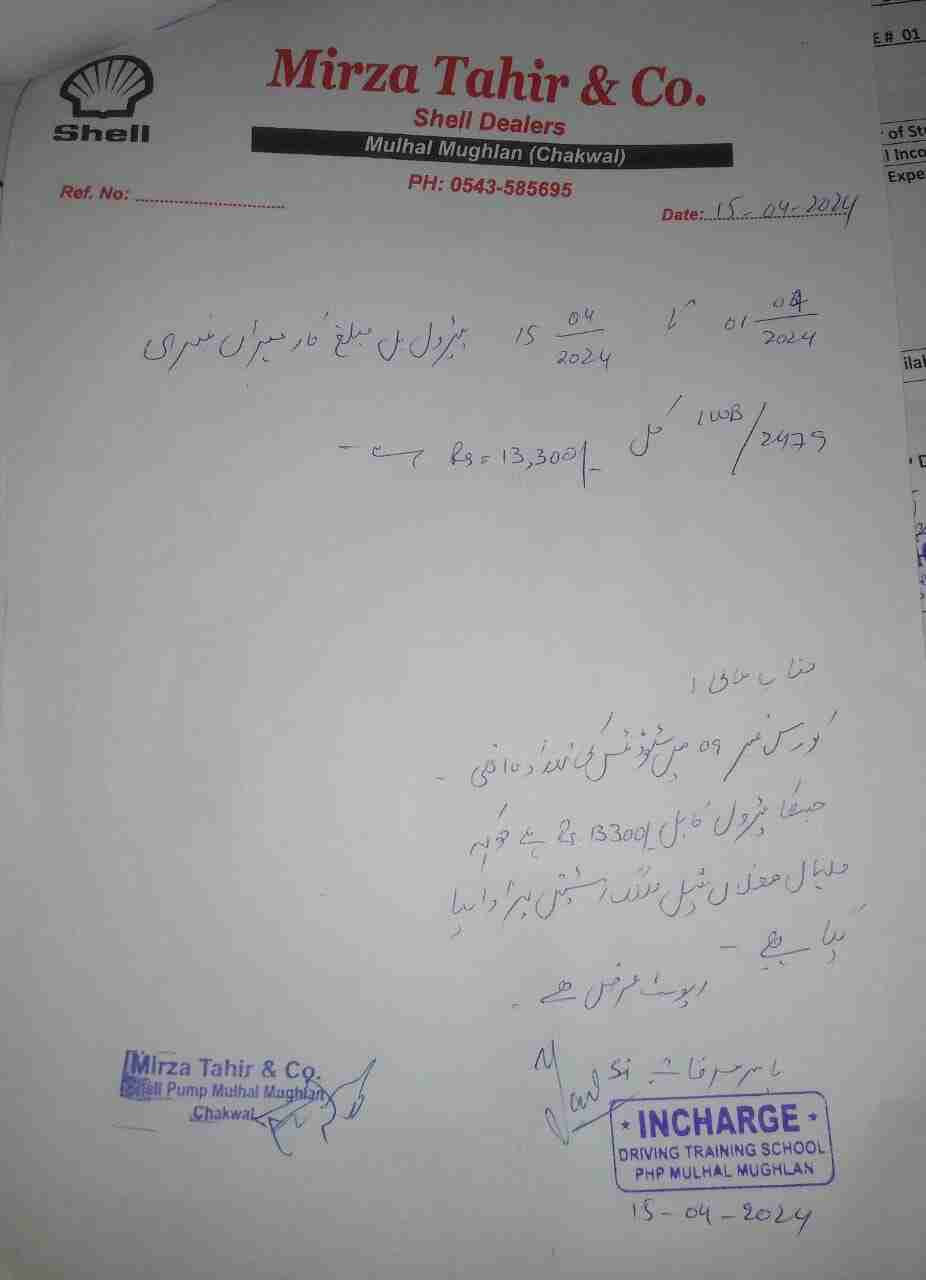 Shell
Mirza Tahir & Co.
Shell Dealers
Mulhal Mughlan (Chakwal)
PH: 0543-585695
Ref. No:
Date: 15-04-2024
01 04/2024 تا 15 04/2024 پٹرول بل مبلغ کار نمبری
2479 کل Rs = 13,300/- ہے -
جناب عالی!
کورس نمبر 09 میں سٹوڈنٹس کی تعداد
جسکا پٹرول کا بل Rs 13300/- ہے جو کہ
ملہال مغلاں شیل پر ادا کیا
گیا ہے -
رپورٹ عرض ہے -
Mirza Tahir & Co.
Shell Pump Mulhal Mughlan
Chakwal
SI
INCHARGE
DRIVING TRAINING SCHOOL
PHP MULHAL MUGHLAN
15-04-2024
E # 01
of St
l Inco
Expe
ilal